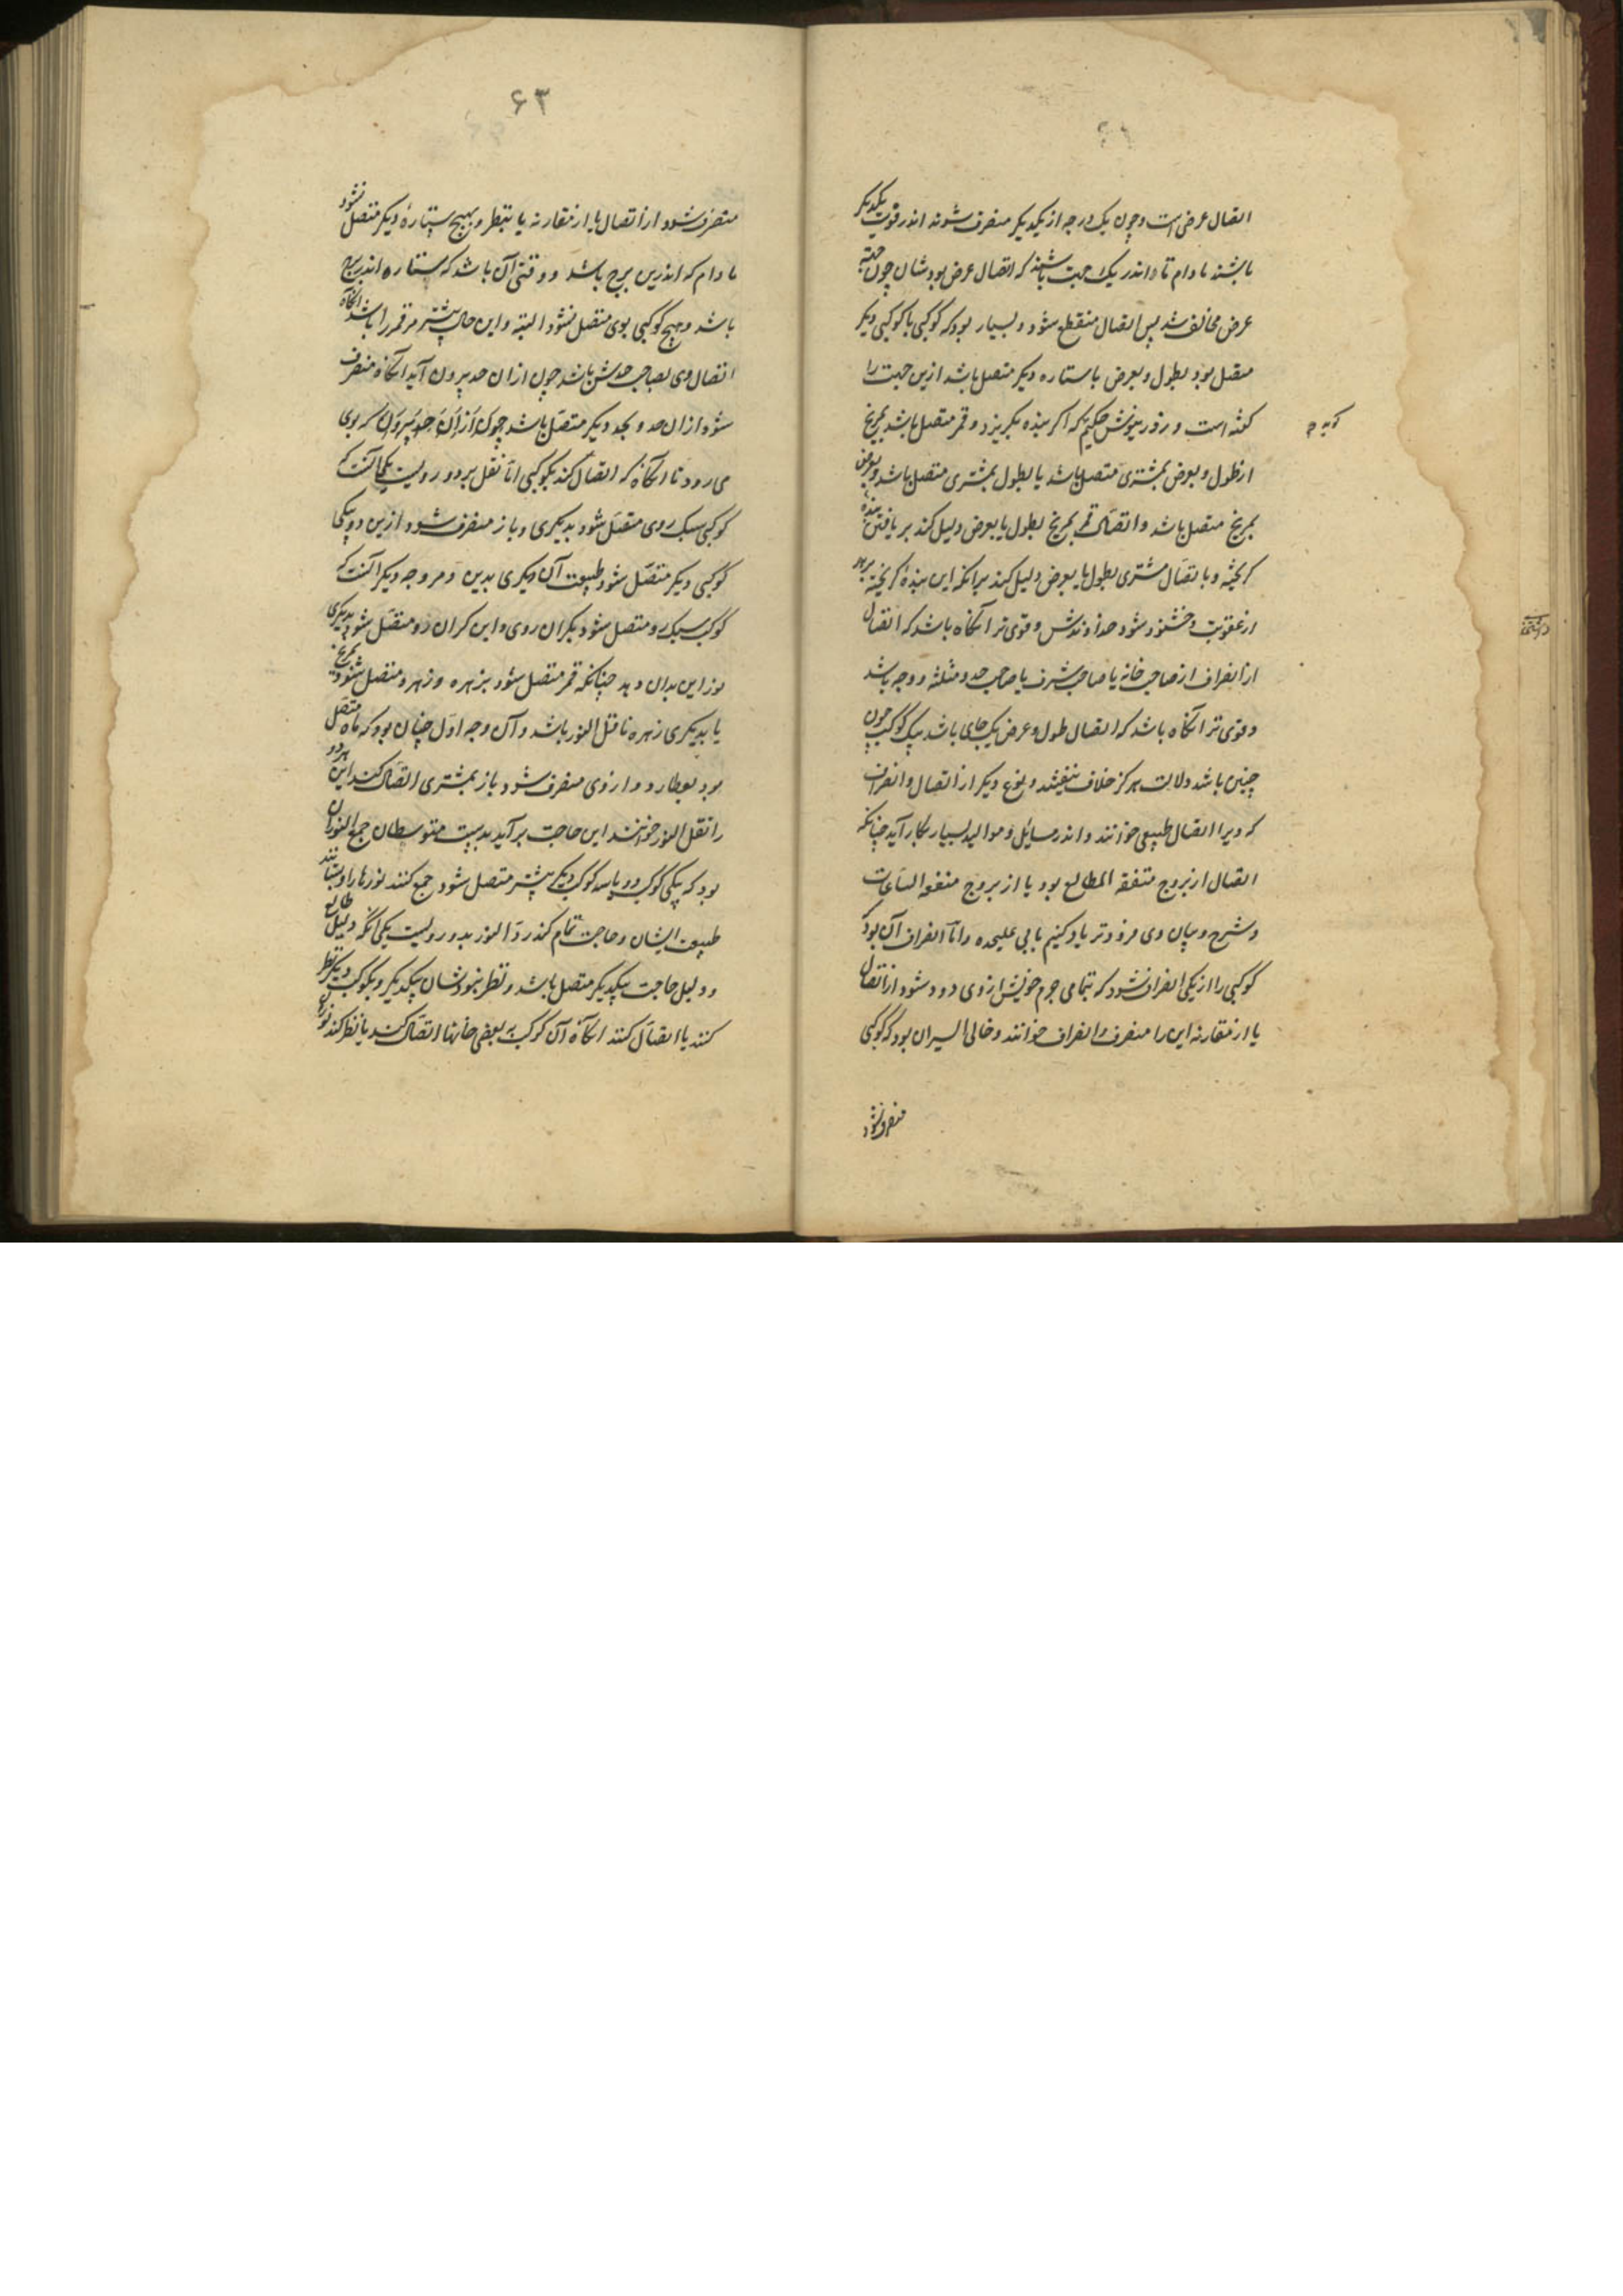 اتصال عرض است و چون یک درجه از یکدیگر منصرف شوند اندر قوت یکدیگر
باشند مادام تا اندر یک جهت باشند که اتصال عرض بودشان چون جهت
عرض مخالف شد پس اتصال منقطع شود و بسیار بود که کوکبی با کوکبی دیگر
متصل بود بطول و بعرض با ستاره دیگر متصل باشد ازین جهت را
گفته است حکیم که اگر بنده بگریزد و قمر متصل باشد بمریخ
از طول و بعرض بمشتری متصل باشد یا بطول بمشتری متصل باشد و بعرض
بمریخ متصل باشد و اتصال قمر بمریخ بطول یا بعرض دلیل کند بر یافتن بنده
گریخته و باتصال مشتری بطول یا بعرض دلیل کند برانکه این بنده گریخته برهد
از عقوبت و خشنود شود خداوندش و قوی‌تر آنگاه باشد که اتصال
از انصراف از صاحب خانه یا صاحب شرف یا صاحب حد و مثلثه و وجه باشد
و قوی‌تر آنگاه باشد که اتصال طول و عرض یک جای باشد بیک کوکب چون
چنین باشد دلالت هرگز خلاف نیفتد و نوع دیگر از اتصال و انصراف
که ویرا اتصال طبیعی خوانند و اندر مسایل و موالید بسیار بکار آید چنانکه
اتصال از بروج متفقه المطالع بود یا از بروج متفقه الساعات
و شرح و بیان وی فرودتر یاد کنیم بابی علیحده و اما انصراف آن بود که
کوکبی را از یکی انصراف شود که بتمامی جرم خویش از وی دور شود از اتصال
یا از مقارنه این را منصرف و انصراف خوانند و خالی السیر آن بود که کوکبی
منصرف شود
۶۳
منصرف شود از اتصال یا از مقارنه یا بنظر و بهیچ ستاره دیگر متصل نشود
مادام که اندرین برج باشد و وقتی آن باشد که ستاره اندر برج
باشد و هیچ کوکبی بوی متصل نشود البته و این حال بیشتر مر قمر را باشد انگاه
اتصال وی بصاحب حدش باشد چون ازان حد بیرون آید انگاه منصرف
شود ازان حد و بحد دیگر متصل باشد چون ازان حد بیرون
می‌رود تا انگاه که اتصال کند بکوکبی اما نقل بر دو رویست یکی آنست که
کوکبی سبک روی متصل شود بدیگری و باز منصرف شود ازین و بیکی
کوکبی دیگر متصل شود طبیعت آن دیگری بدین دهد و وجه دیگر آنست که
کوکب سبک رو متصل شود بگران روی و این گران رو متصل شود بدیگری
نور این بدان دهد چنانکه قمر متصل شود بزهره و زهره متصل شود بمریخ
یا بدیگری زهره ناقل النور باشد و آن وجه اول چنان بود که ماه متصل
بود بعطارد و از وی منصرف شود باز بمشتری اتصال کند این هر دو
را نقل النور خوانند این حاجت برآید بدست متوسطان جمع النور آن
بود که یکی کوکب دو یا سه کوکب دیگر بیشتر متصل شود جمع کنند نورها را و بستانند
طبیعت ایشان و حاجت تمام کند رد النور بدو رویست یکی انکه دلیل طالع
و دلیل حاجت بیکدیگر متصل باشد و نظر نبودشان بیکدیگر و بکوکب دیگر نظر
کنند یا اتصال کنند انگاه آن کوکب به بعضی خانها اتصال کند یا نظر کند نورها